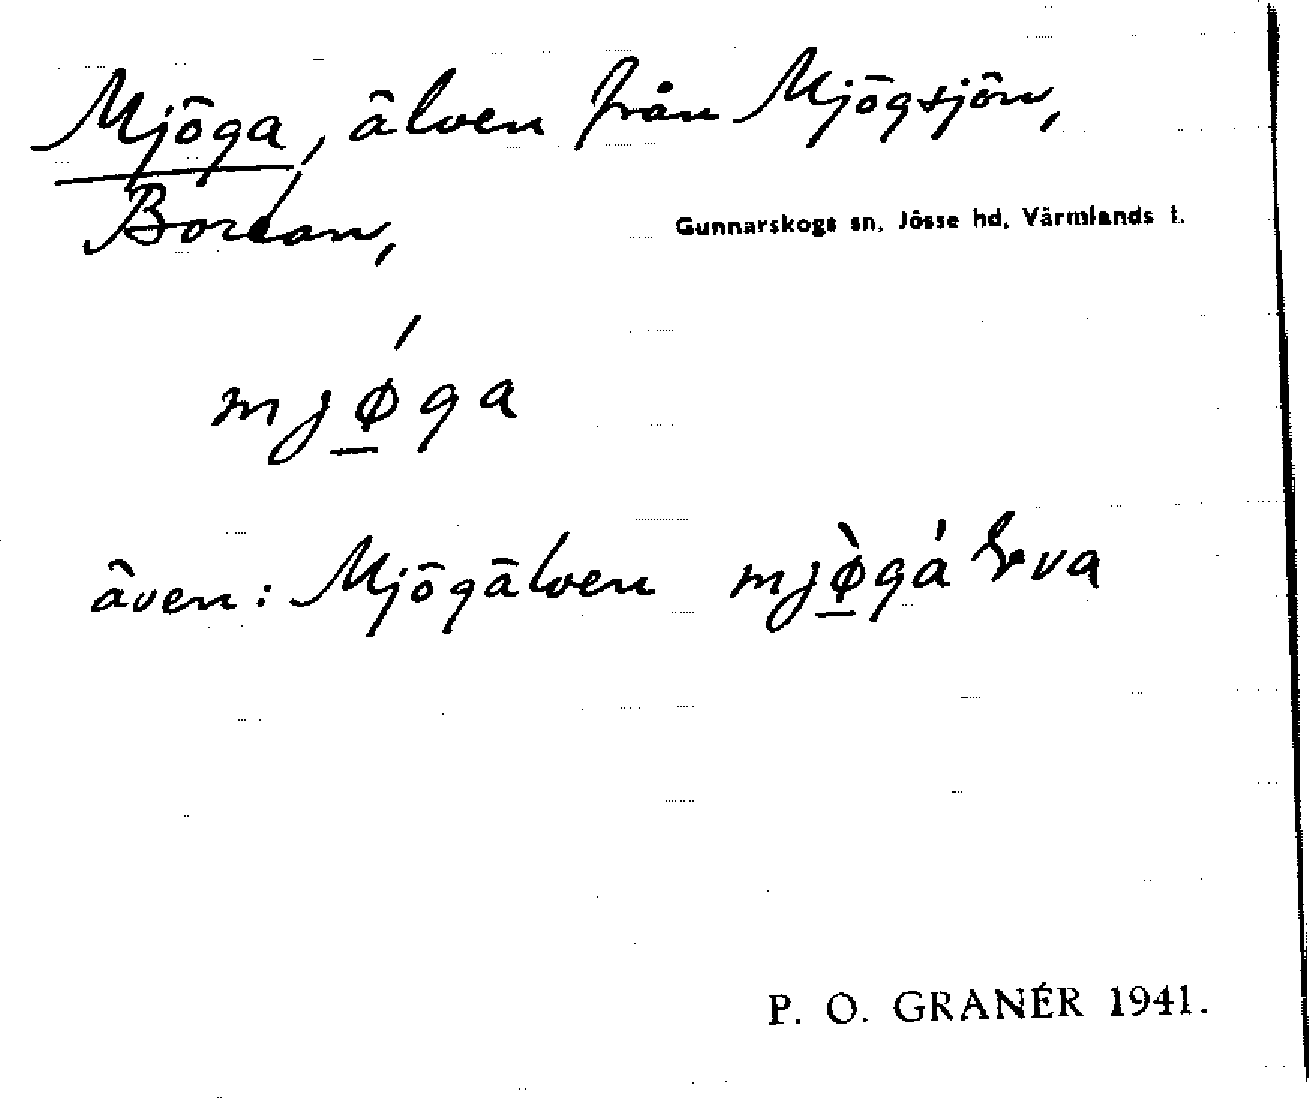 Mjöga, älven från Mjögsjön,
Borean,
Gunnarskogs sn, Jösse hd, Värmlands l.
mjǿ̲ga
även: Mjögälven mjø̲̀gá
P. O. GRANÉR 1941.